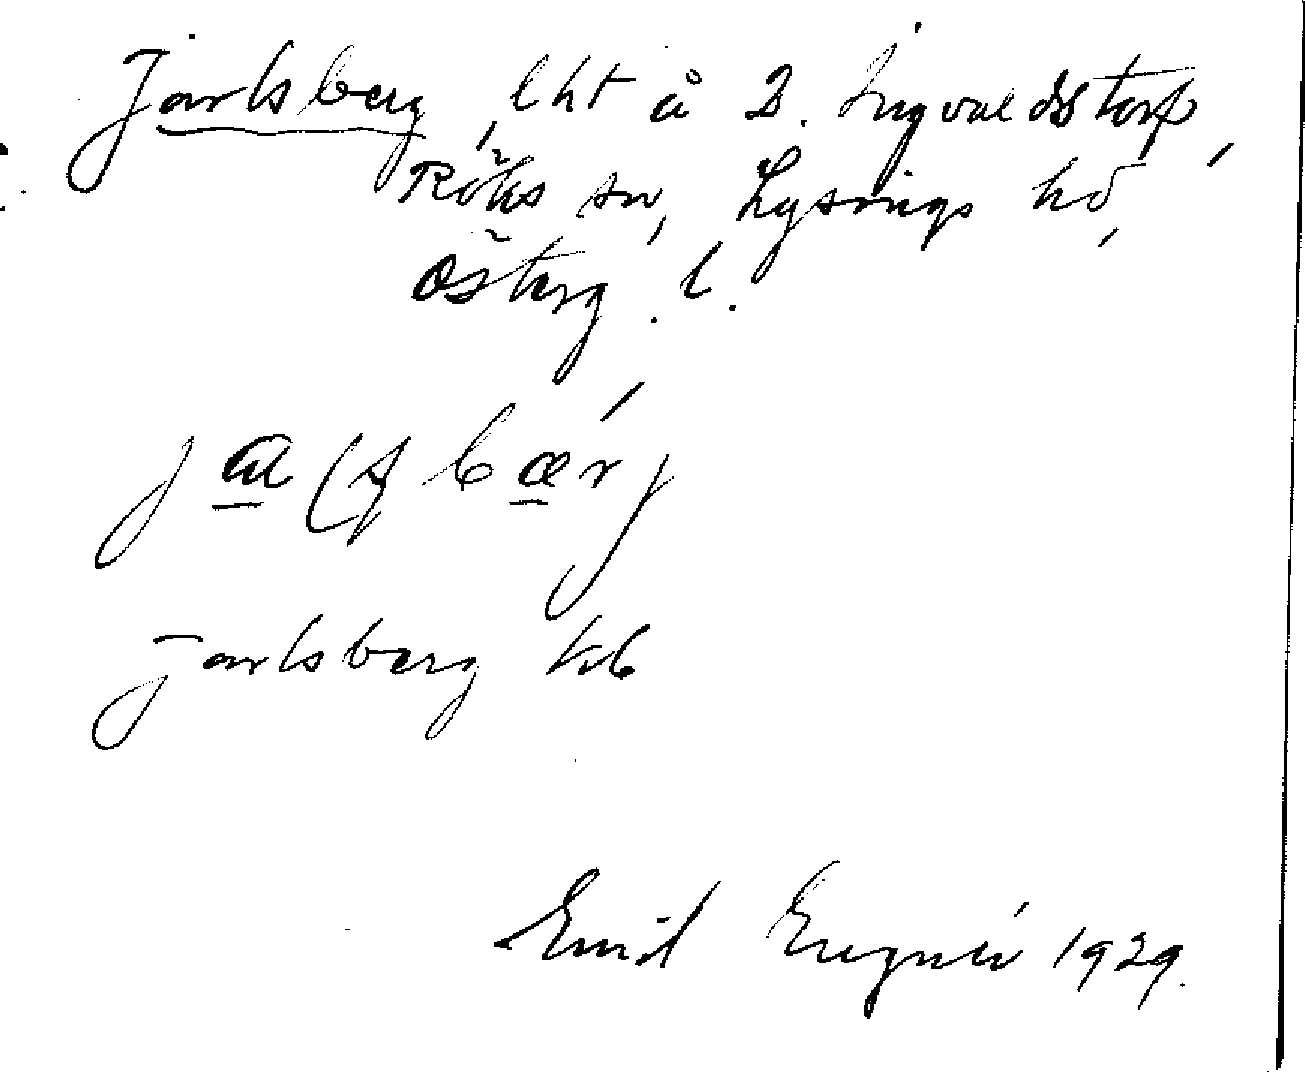 Jarlsberg, lht å 2. Ingvaldstorp,
Röks sn, Lysings hd,
Österg. l.
bærj
Jarlsberg kb
Emil Eugnér 1929.